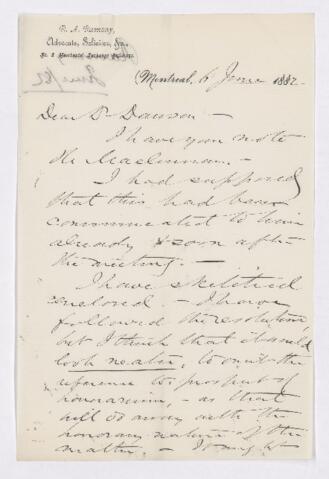 R. A. Ramsay,
Advocate, Solicitor, &c.
No. 2 Merchants' Exchange
June/82
Montreal, 6 June 1882
Dear Dr Dawson -
I have your note
re MacLennan. -
I had supposed
that this had been
communicated to him
already & soon after
the meeting. -
I have sketched
enclosed. - I have
followed the resolution,
but I think that it would
look neater, to omit the
reference to prospect of
honorarium, - as that
will do away with the
honorary nature of the
matter. - It might